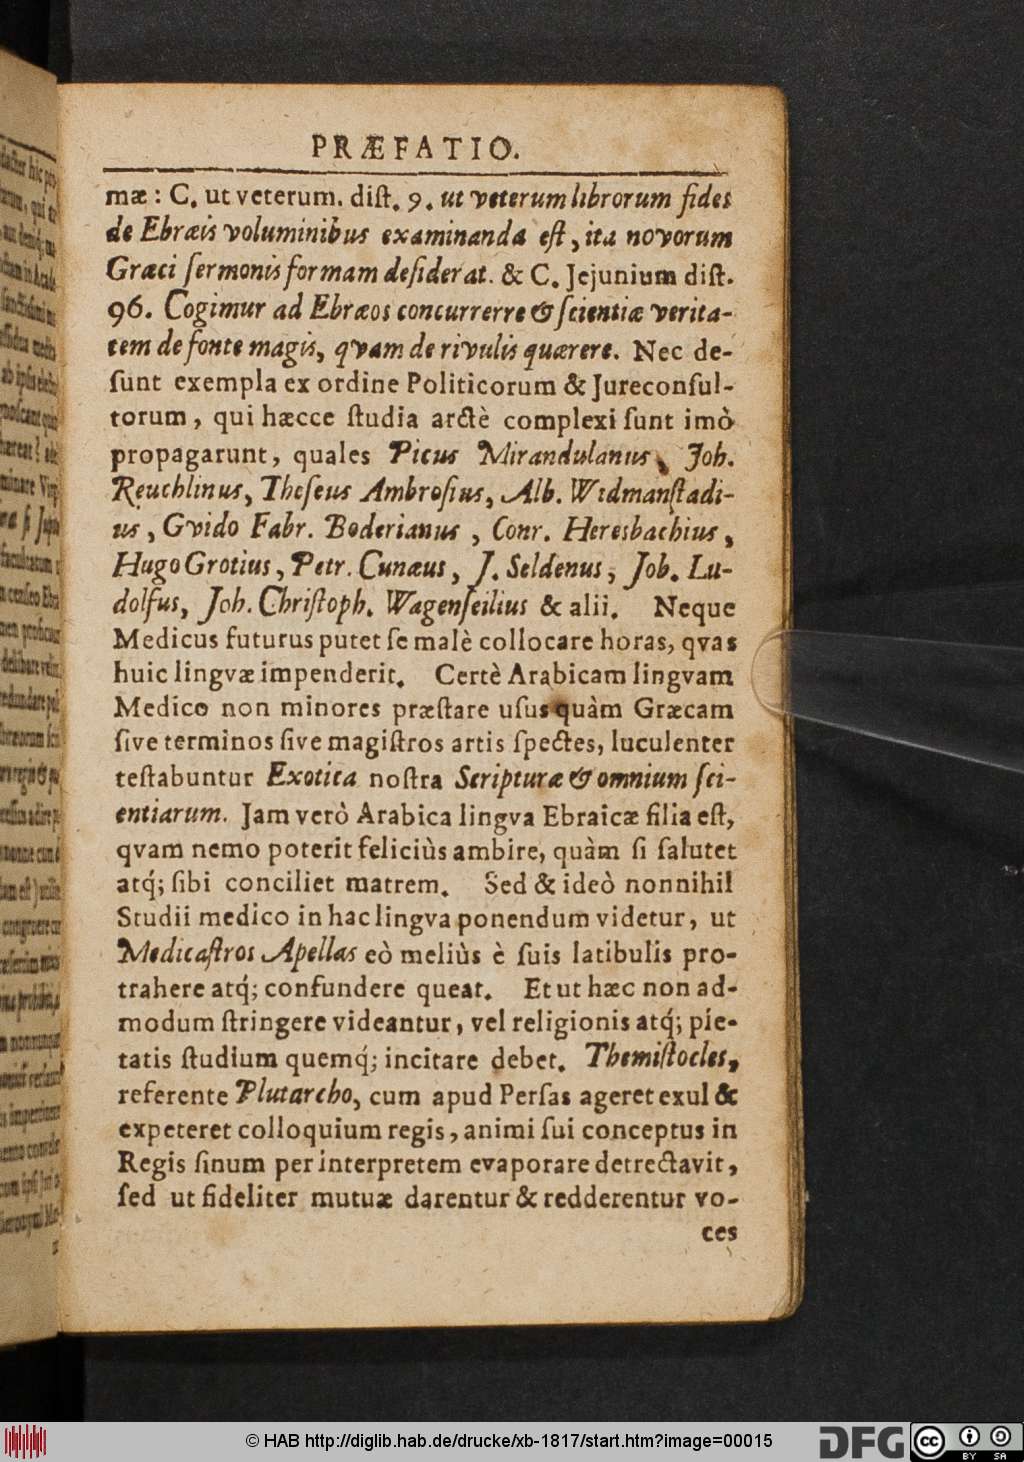 PRÆFATIO.
mæ: C. ut veterum. diſt. 9. ut veterum librorum fides
de Ebræis voluminibus examinanda eſt, ita novorum
Græci ſermonis formam deſiderat. & C. Jejunium diſt.
96. Cogimur ad Ebræos concurrerre & ſcientiæ verita-
tem de fonte magis, qvam de rivulis quærere. Nec de-
ſunt exempla ex ordine Politicorum & Jureconſul-
torum, qui hæcce ſtudia arctè complexi ſunt imò
propagarunt, quales Picus Mirandulanus, Joh.
Reuchlinus, Theſeus Ambroſius, Alb. Widmanſtadi-
us, Gvido Fabr. Boderianus, Conr. Heresbachius,
Hugo Grotius, Petr. Cunæus, J. Seldenus, Job. Lu-
dolfus, Joh. Chriſtoph. Wagenſeilius & alii. Neque
Medicus futurus putet ſe malè collocare horas, qvas
huic lingvæ impenderit. Certè Arabicam lingvam
Medico non minores præſtare uſus quàm Græcam
ſive terminos ſive magiſtros artis ſpectes, luculenter
teſtabuntur Exotica noſtra Scripturæ & omnium ſci-
entiarum. Jam verò Arabica lingva Ebraicæ filia eſt,
qvam nemo poterit feliciùs ambire, quàm ſi ſalutet
atq́; ſibi conciliet matrem. Sed & ideò nonnihil
Studii medico in hac lingva ponendum videtur, ut
Medicaſtros Apellas eò meliùs è ſuis latibulis pro-
trahere atq́; confundere queat. Et ut hæc non ad-
modum ſtringere videantur, vel religionis atq́; pie-
tatis ſtudium quemq́; incitare debet. Themiſtocles,
referente Plutarcho, cum apud Perſas ageret exul &
expeteret colloquium regis, animi ſui conceptus in
Regis ſinum per interpretem evaporare detrectavit,
ſed ut fideliter mutuæ darentur & redderentur vo-
ces
© HAB http://diglib.hab.de/drucke/xb-1817/start.htm?image=00015
DFG
cc
BY SA